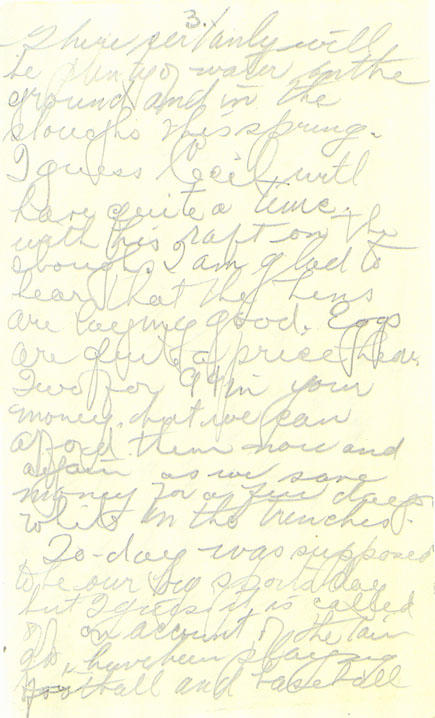 3.
There certainly will
be plenty of water on the
ground and in the
sloughs this spring.
I guess Cecil will
have quite a time
with his raft on the
slough. I am glad to
hear that the hens
are laying good. Eggs
are quite a price here.
Two for 9¢ in your
money, but we can
afford them now and
again as we save
money for a few days
while in the trenches.
To-day was supposed
to be our big sports day
but I guess it is called
off on account of the rain
have been playing
football and baseball